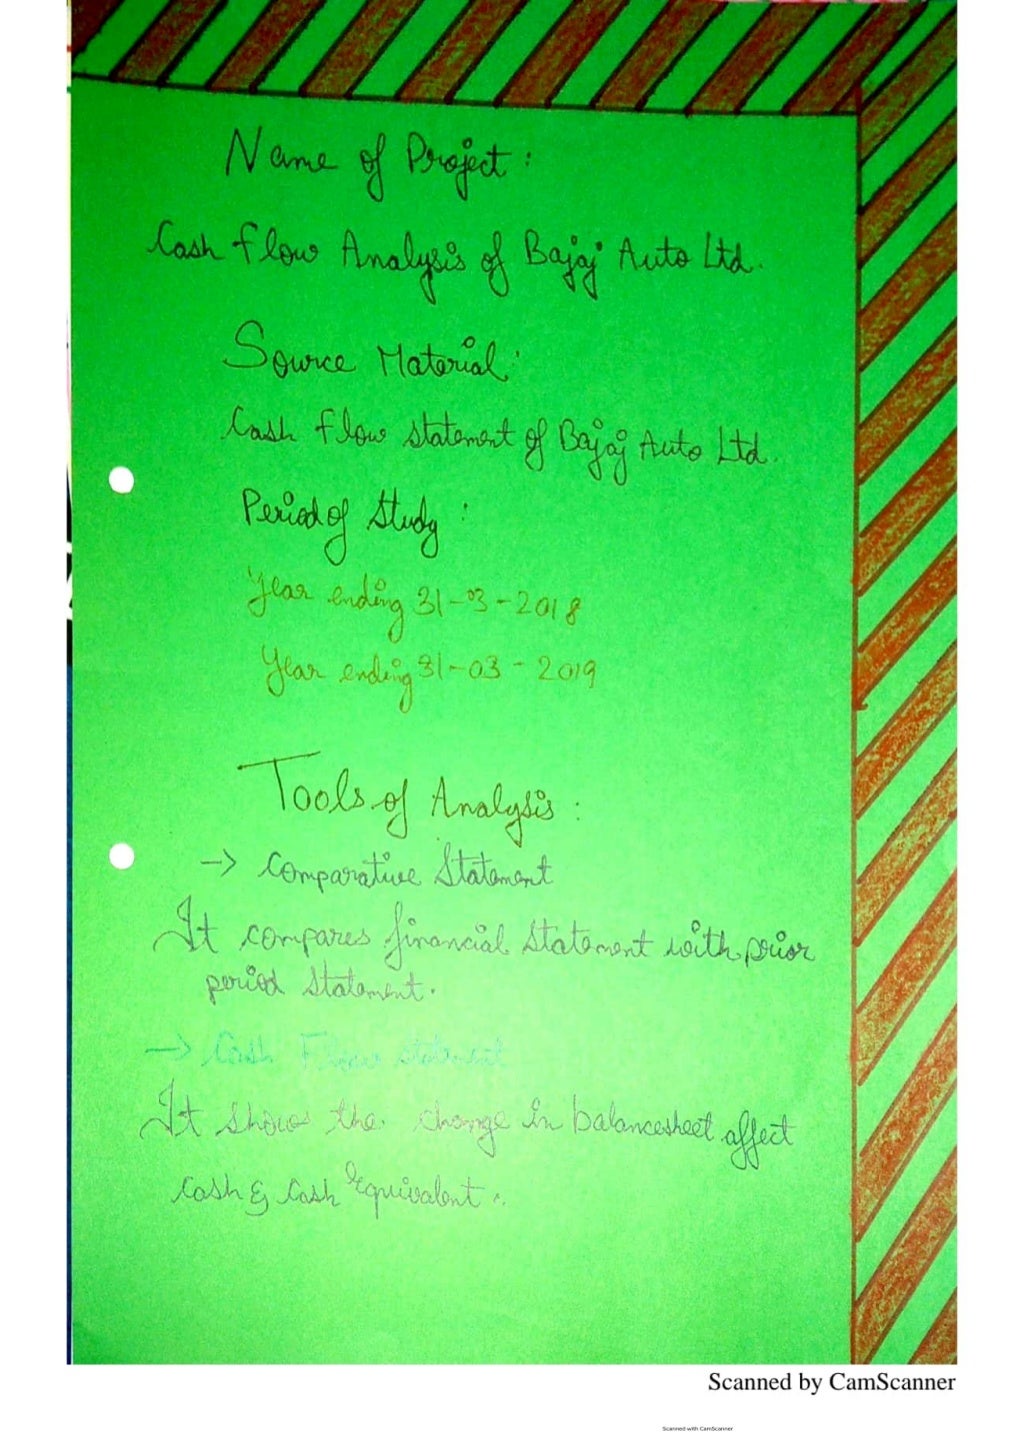 Name of Project :
Cash Flow Analysis of Bajaj Auto Ltd.
Source Material :
Cash Flow statement of Bajaj Auto Ltd.
Period of Study :
Year ending 31-03-2018
Year ending 31-03-2019
Tools of Analysis :
→ Comparative Statement
It compares financial Statement with prior
period Statement.
→ Cash Flow statement
It shows the change in balancesheet affect
Cash & Cash Equivalent.
Scanned by CamScanner
Scanned with CamScanner